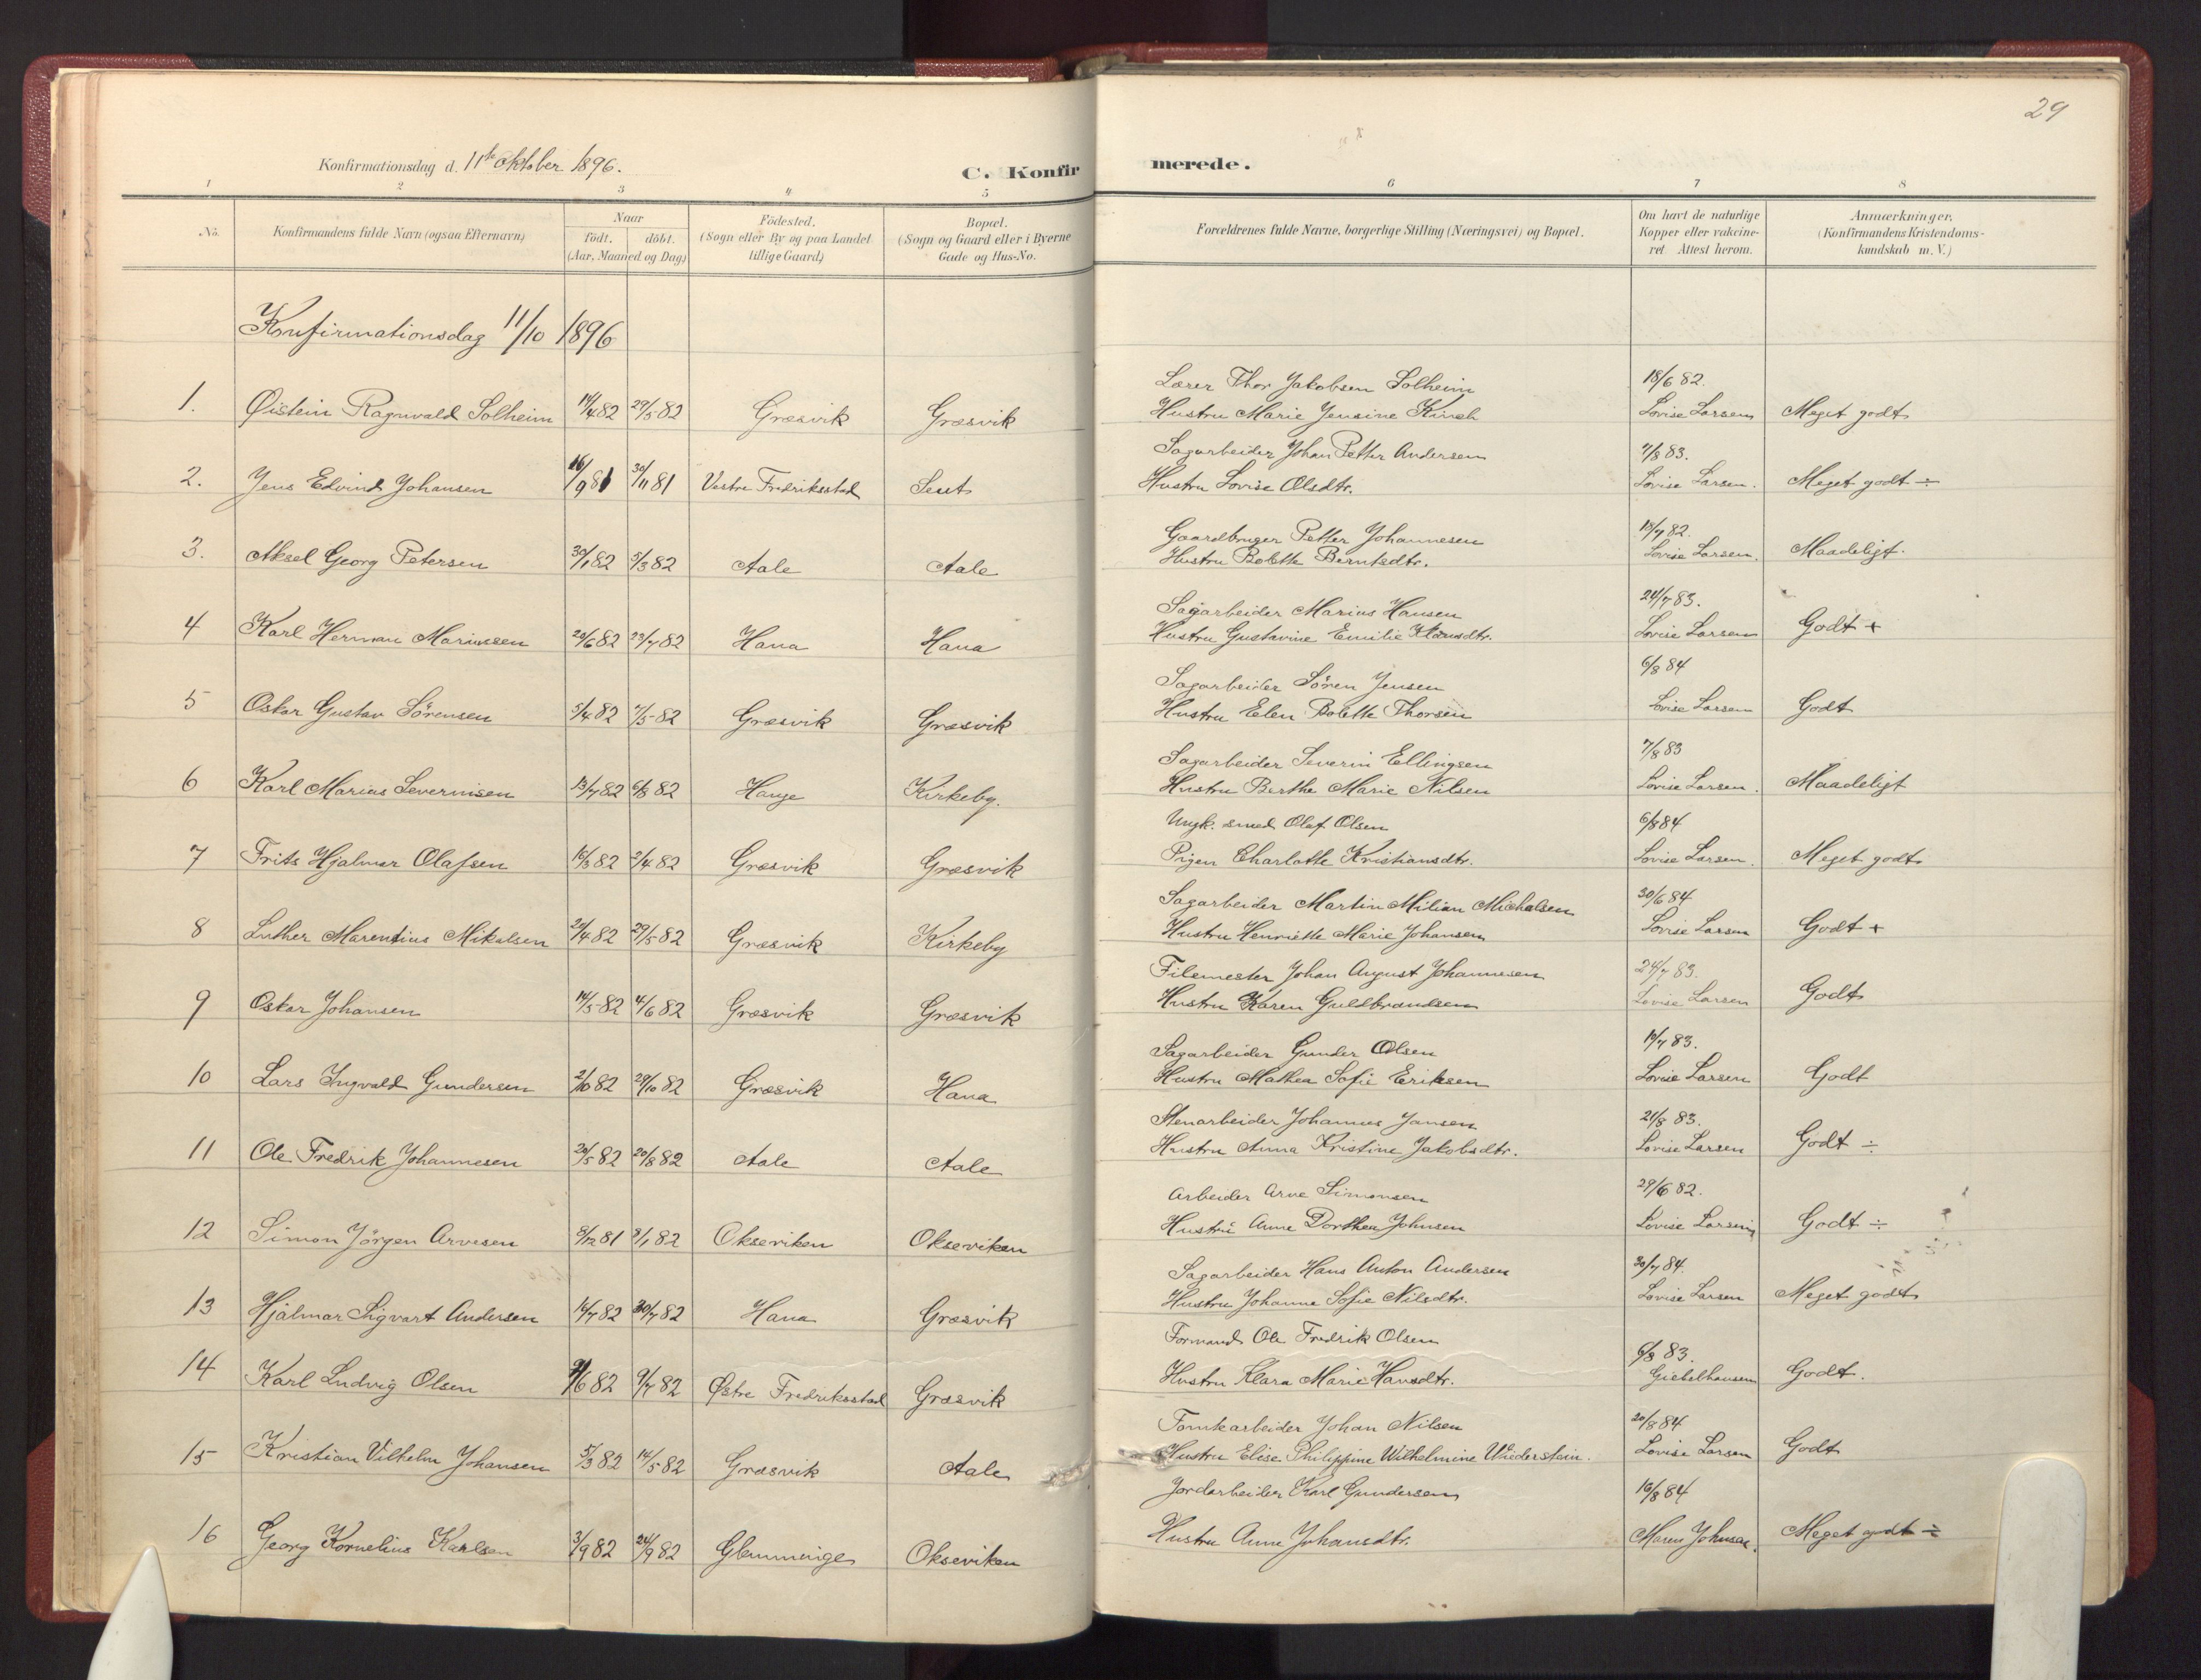 29
Konfirmationsdag d. 11te Oktober 1896.
C. Konfirmerede.
1 2 3 4 5 6 7 8
No. | Konfirmandens fulde Navn (ogsaa Efternavn) | Naar födt. döbt. (Aar, Maaned og Dag) | Födested. (Sogn eller By og paa Landet tillige Gaard) | Bopæl. (Sogn og Gaard eller i Byerne Gade og Hus-No. | Forældrenes fulde Navne, borgerlige Stilling (Næringsvei) og Bopæl. | Om havt de naturlige Kopper eller vakcineret Attest herom. | Anmærkninger, (Konfirmandens Kristendomskundskab m. V.)
Konfirmationsdag 11/10 1896
Lærer Thor Jakobsen Solheim 18/6 82.
1. Øistein Ragnvald Solheim 14/4 82 29/5 82 Græsvik Græsvik Hustru Marie Jensine Kinch Lovise Larsen Meget godt
Sagarbeider Johan Petter Andersen 7/8 83.
2. Jens Edvind Johansen 16/9 81 30/11 81 Vestre Fredriksstad Seut Hustru Lovise Olsdtr. Lovise Larsen. Meget godt ÷
Gaardbruger Petter Johannesen 18/7 82.
3. Aksel Georg Petersen 30/1 82 5/3 82 Aale Aale Hustru Bolette Berntsdtr. Lovise Larsen. Maadeligt.
Sagarbeider Marius Hansen 24/7 83.
4 Karl Herman Mariussen 20/6 82 23/7 82 Hana Hana Hustru Gustavine Emilie Lovise Larsen Godt +
Sagarbeider Sören Jensen 6/8 84
5 Oskar Gustav Sörensen 5/4 82 7/5 82 Græsvik Græsvik Hustru Elen Bolette Thorsen Lovise Larsen Godt
Sagarbeider Severin Ellingsen 7/8 83
6 Karl Marius Severinsen 13/7 82 6/8 82 Hauge Kirkeby. Hustru Berthe Marie Nilsen Lovise Larsen. Maadeligt
Ungk. smed Olaf Olsen 6/8 84
7 Frits Hjalmar Olafsen 2/4 82 Græsvik Græsvik Pigen Charlotte Kristiansdtr. Lovise Larsen. Meget godt
Sagarbeider Martin Milian Michalsen 30/6 84
8 Luther Marentius Mikalsen 29/5 82 Græsvik Kirkeby Hustru Henriette Marie Johansen Lovise Larsen Godt +
Filemester Johan August Johannesen 24/7 83.
9 Oskar Johansen 14/5 82 4/6 82 Græsvik Græsvik Hustru Karen Guldbrandsen Lovise Larsen Godt
Sagarbeider Gunder Olsen
10 Lars Ingvald Gundersen 2/10 82 29/10 82 Græsvik Hana Hustru Mathea Sofie Eriksen Lovise Larsen Godt
Stenarbeider Johannes Jansen 21/8 83.
11 Ole Fredrik Johannesen 30/5 82 20/8 82 Aale Aale Hustru Anna Kristine Jakobsdtr. Lovise Larsen Godt ÷
Arbeider Arve Simonsen 29/6 82.
12 Simon Jörgen Arvesen 8/12 81 8/1 82 Okseviken Okseviken Hustru Anne Dorthea Johnsen Lovise Larsen Godt ÷
Sagarbeider Hans Anton Andersen 30/7 84.
13 Hjalmar Sigvart Andersen 30/7 82 Hana Græsvik Hustru Johanne Sofie Nilsdtr. Lovise Larsen Meget godt
Formand Ole Fredrik Olsen 6/8 83.
14 Karl Ludvig Olsen 9/7 82 Østre Fredriksstad Græsvik Hustru Klara Marie Hansdtr. Giebelhausen Godt.
Tomtearbeider Johan Nilsen 20/8 84
15 Kristian Vilhelm Johansen 5/3 82 14/5 82 Græsvik Aale Hustru Elise Philippine Wilhelmine Wiederstein. Lovise Larsen Godt
Jordarbeider Karl Gundersen 16/8 84
16 Georg Kornelius Karlsen 3/9 82 24/9 82 Glemminge Okseviken Hustru Anne Johansdtr. Maren Johnsen. Meget godt ÷